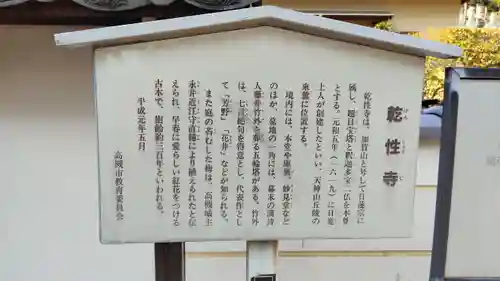 乾性寺
けんしょうじ
乾性寺は、如皆山と号して日蓮宗に
属し、題目宝塔と釈迦多宝二仏を本尊
とする。元和五年(一六一九)に日逕
上人が創建したといい、天神山丘陵の
東麓に位置する。
境内には、本堂や庫裏、妙見堂など
のほか、墓地の一角には、幕末の漢詩
人藤井竹外を祀る五輪塔がある。竹外
は、七言絶句を得意とし、代表作とし
て「芳野」「花朝」などが知られる。
また庭の茗むした梅は、高槻城主
永井近江守直種により植えられたと伝
えられ、早春は愛らしい紅花をつける
古木で、樹齢約三百年といわれる。
平成元年五月
高槻市教育委員会